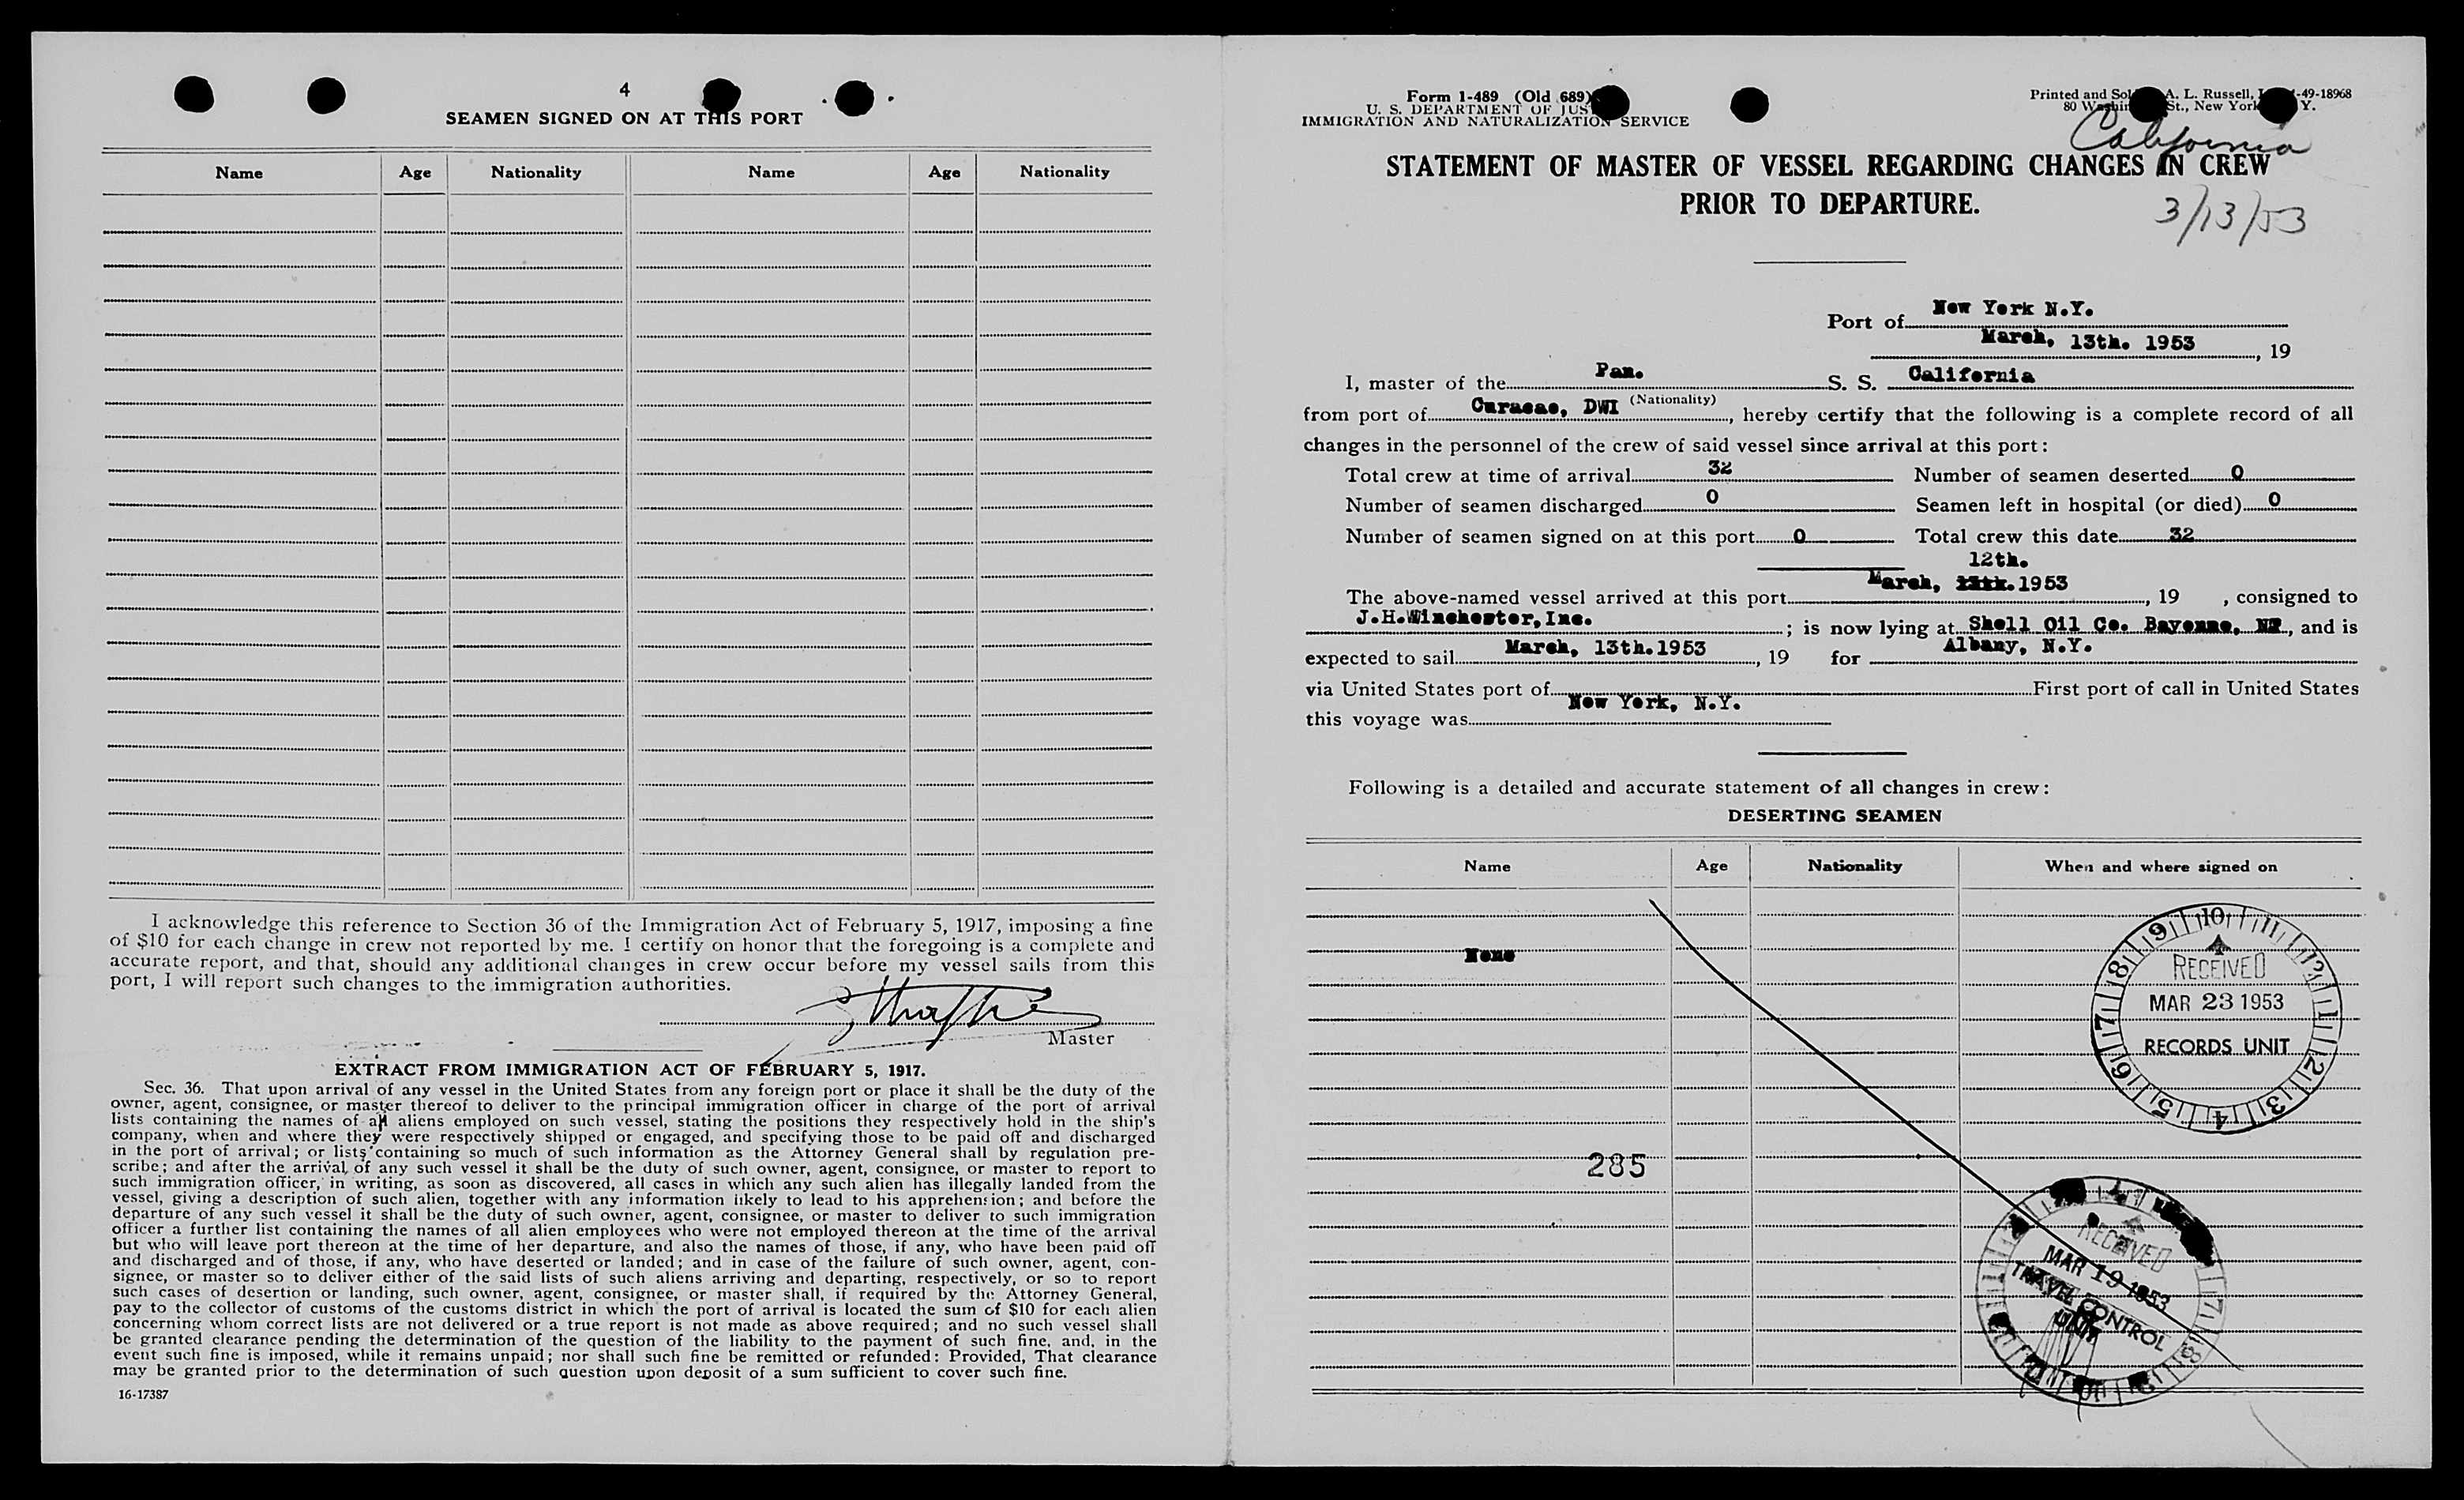 4
SEAMEN SIGNED ON AT THIS PORT
Name Age Nationality Name Age Nationality
I acknowledge this reference to Section 36 of the Immigration Act of February 5, 1917, imposing a fine
of $10 for each change in crew not reported by me. I certify on honor that the foregoing is a complete and
accurate report, and that, should any additional changes in crew occur before my vessel sails from this
port, I will report such changes to the immigration authorities.
Master
EXTRACT FROM IMMIGRATION ACT OF FEBRUARY 5, 1917.
Sec. 36. That upon arrival of any vessel in the United States from any foreign port or place it shall be the duty of the
owner, agent, consignee, or master thereof to deliver to the principal immigration officer in charge of the port of arrival
lists containing the names of all aliens employed on such vessel, stating the positions they respectively hold in the ship's
company, when and where they were respectively shipped or engaged, and specifying those to be paid off and discharged
in the port of arrival; or lists containing so much of such information as the Attorney General shall by regulation pre-
scribe; and after the arrival of any such vessel it shall be the duty of such owner, agent, consignee, or master to report to
such immigration officer, in writing, as soon as discovered, all cases in which any such alien has illegally landed from the
vessel, giving a description of such alien, together with any information likely to lead to his apprehension; and before the
departure of any such vessel it shall be the duty of such owner, agent, consignee, or master to deliver to such immigration
officer a further list containing the names of all alien employees who were not employed thereon at the time of the arrival
but who will leave port thereon at the time of her departure, and also the names of those, if any, who have been paid off
and discharged and of those, if any, who have deserted or landed; and in case of the failure of such owner, agent, con-
signee, or master so to deliver either of the said lists of such aliens arriving and departing, respectively, or so to report
such cases of desertion or landing, such owner, agent, consignee, or master shall, if required by the Attorney General,
pay to the collector of customs of the customs district in which the port of arrival is located the sum of $10 for each alien
concerning whom correct lists are not delivered or a true report is not made as above required; and no such vessel shall
be granted clearance pending the determination of the question of the liability to the payment of such fine, and, in the
event such fine is imposed, while it remains unpaid; nor shall such fine be remitted or refunded: Provided, That clearance
may be granted prior to the determination of such question upon deposit of a sum sufficient to cover such fine.
16-17387
Form 1-489 (Old 689)
U. S. DEPARTMENT OF JUS
IMMIGRATION AND NATURALIZATION SERVICE
Printed and Sol A. L. Russell, -49-18968
80 Washin St., New York Y.
California
STATEMENT OF MASTER OF VESSEL REGARDING CHANGES IN CREW
PRIOR TO DEPARTURE.
3/13/53
Port of New York N.Y.
March, 13th. 1953, 19
I, master of the Pan. S. S. California
(Nationality)
from port of Curacao, DWI, hereby certify that the following is a complete record of all
changes in the personnel of the crew of said vessel since arrival at this port:
Total crew at time of arrival 32 Number of seamen deserted 0
Number of seamen discharged 0 Seamen left in hospital (or died) 0
Number of seamen signed on at this port 0 Total crew this date 32
12th.
The above-named vessel arrived at this port March, 1953, 19 , consigned to
J.H.Winchester,Inc.; is now lying at Shell Oil Co. Bayonne, , and is
expected to sail March, 13th.1953, 19 for Albany, N.Y.
via United States port of First port of call in United States
this voyage was New York, N.Y.
Following is a detailed and accurate statement of all changes in crew:
DESERTING SEAMEN
Name Age Nationality When and where signed on
None
9 10 11 12 1 2 3 4 5 6 7 8
RECEIVED
MAR 23 1953
RECORDS UNIT
285
RECEIVED
MAR 19 1953
TRAVEL CONTROL
UNIT